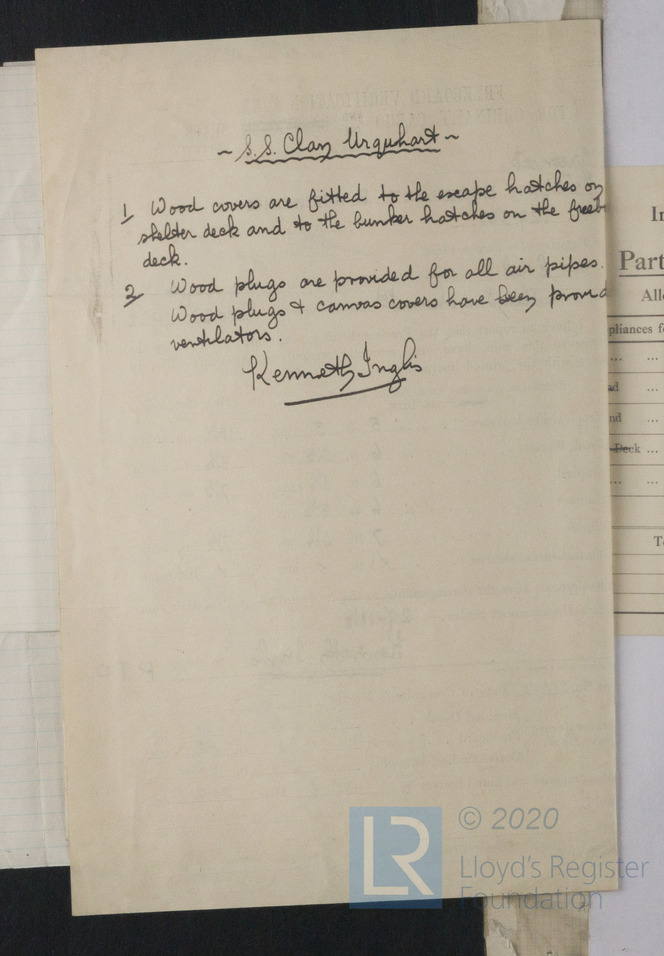 ~ S.S. Clan Urquhart ~
1 Wood covers are fitted to the escape hatches on
shelter deck and to the bunker hatches on the freeb
deck.
2 Wood plugs are provided for all air pipes.
Wood plugs & canvas covers have been provid
ventilators.
Kenneth Inglis
In
Part
All
pliances f
...
ad ...
nd ...
Deck ...
...
T
LR
© 2020
Lloyd's Register
Foundation